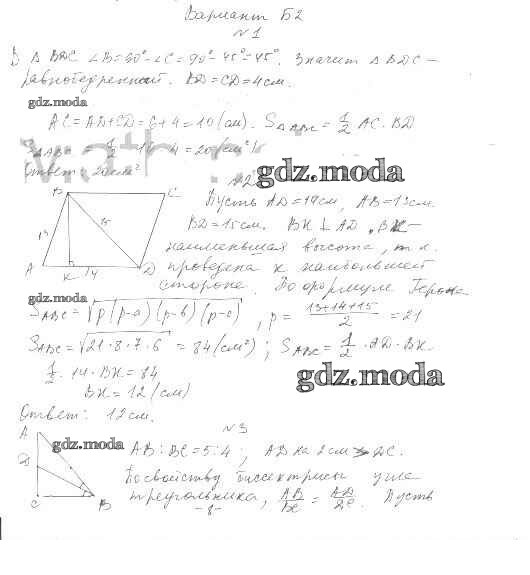 Вариант Б2
№1
В Δ BDC ∠B=90°-∠C=90°-45°=45°. Значит Δ BDC -
равнобедренный. BD=CD=4см.
gdz.moda
AC=AD+CD=6+4=10(см). S_ΔABC=1/2 AC·BD
S_ΔABC = 1/2 · 10 · 4=20(см²)
Ответ: 20см²
№2
gdz.moda
B C
Пусть AD=14см, AB=13см
13 15
BD=15см. BK⊥AD, BK-
наименьшая высота, т.к.
A K 14 D
проведена к наибольшей
стороне. По формуле Герона
gdz.moda
S_ABC=√p(p-a)(p-b)(p-c), p= (13+14+15)/2 =21
S_ABC=√21·8·7·6 = 84(см²); S_ABC=1/2·AD·BK
1/2·14·BK=84
gdz.moda
BK=12(см)
Ответ: 12см.
№3
A
gdz.moda
AB:BC=5:4; AD на 2см > DC.
D
По свойству биссектрисы угла
треугольника, AB/BC = AD/DC. Пусть
C B
-8-